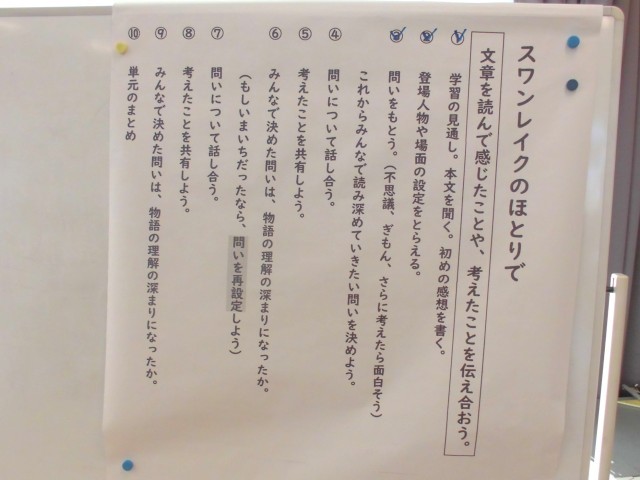 スワンレイクのほとりで
文章を読んで感じたことや、考えたことを伝え合おう。
① 学習の見通し。本文を聞く。初めの感想を書く。
② 登場人物や場面の設定をとらえる。
③ 問いをもとう。(不思議、ぎもん、さらに考えたら面白そう)
これからみんなで読み深めていきたい問いを決めよう。
④ 問いについて話し合う。
⑤ 考えたことを共有しよう。
⑥ みんなで決めた問いは、物語の理解の深まりになったか。
(もしいまいちだったなら、問いを再設定しよう)
⑦ 問いについて話し合う。
⑧ 考えたことを共有しよう。
⑨ みんなで決めた問いは、物語の理解の深まりになったか。
⑩ 単元のまとめ